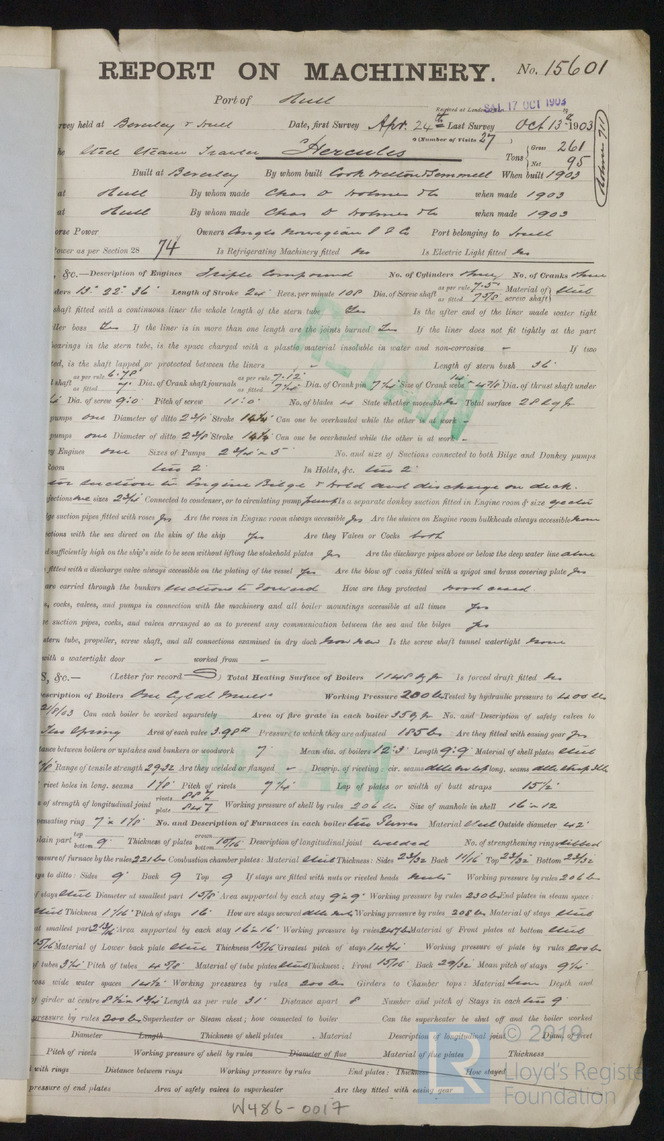 REPORT ON MACHINERY. No. 15601
Port of Hull
Received at London SAT. 17 OCT 1903
rvey held at Beverley & Hull Date, first Survey Apr. 24th Last Survey Oct 13th 1903
(Number of Visits 27
he Steel Steam Trawler Hercules Tons { Gross 261 Net 95
Built at Beverley By whom built Cook Welton & Gemmell When built 1903
at Hull By whom made Chas D Holmes & Co when made 1903
at Hull By whom made Chas D Holmes & Co when made 1903
orse Power Owners Anglo Norwegian Port belonging to Hull
Power as per Section 28 74 Is Refrigerating Machinery fitted No Is Electric Light fitted No
, &c.—Description of Engines Triple Compound No. of Cylinders three No. of Cranks three
ders 13" 22" 36" Length of Stroke 24" Revs. per minute 108 Dia. of Screw shaft as per rule 7.5" as fitted 7 5/8 Material of screw shaft Steel
shaft fitted with a continuous liner the whole length of the stern tube Yes Is the after end of the liner made water tight
ller boss Yes If the liner is in more than one length are the joints burned Yes If the liner does not fit tightly at the part
bearings in the stern tube, is the space charged with a plastic material insoluble in water and non-corrosive - If two
ted, is the shaft lapped or protected between the liners - Length of stern bush 36"
l shaft as per rule 6.78" as fitted 7" Dia. of Crank shaft journals as per rule 7.12" as fitted 7 1/4 Dia. of Crank pin 7 1/4 Size of Crank webs Dia. of thrust shaft under
Dia. of screw 9'.0" Pitch of screw 11'.0" No. of blades 4 State whether moveable No Total surface 28 sq ft
pumps one Diameter of ditto 2 3/8 Stroke 14 1/2 Can one be overhauled while the other is at work -
pumps one Diameter of ditto 2 3/8 Stroke 14 1/2 Can one be overhauled while the other is at work -
y Engines one Sizes of Pumps 2 3/4 x 5" No. and size of Suctions connected to both Bilge and Donkey pumps
Room two 2" In Holds, &c. two 2"
tor suction to Engine Bilge & Hold and discharge on deck.
jections one sizes 2 3/4 Connected to condenser, or to circulating pump pump Is a separate donkey suction fitted in Engine room & size ejector
lge suction pipes fitted with roses Yes Are the roses in Engine room always accessible Yes Are the sluices on Engine room bulkheads always accessible none
ections with the sea direct on the skin of the ship Yes Are they Valves or Cocks both
d sufficiently high on the ship's side to be seen without lifting the stokehold plates Yes Are the discharge pipes above or below the deep water line above
fitted with a discharge valve always accessible on the plating of the vessel Yes Are the blow off cocks fitted with a spigot and brass covering plate Yes
are carried through the bunkers suctions to forward How are they protected wood cased.
s, cocks, valves, and pumps in connection with the machinery and all boiler mountings accessible at all times Yes
e suction pipes, cocks, and valves arranged so as to prevent any communication between the sea and the bilges Yes
stern tube, propeller, screw shaft, and all connections examined in dry dock now new Is the screw shaft tunnel watertight none
with a watertight door - worked from -
S, &c.— (Letter for record S) Total Heating Surface of Boilers 1148 sq ft Is forced draft fitted No
escription of Boilers One Cyldl Mult Working Pressure 200 lbs Tested by hydraulic pressure to 400 lbs
21/8/03 Can each boiler be worked separately Area of fire grate in each boiler 35 sq ft No. and Description of safety valves to
Two Spring Area of each valve 3.98" Pressure to which they are adjusted 185 lbs Are they fitted with easing gear Yes
tance between boilers or uptakes and bunkers or woodwork 7" Mean dia. of boilers 12'.3" Length 9'.9" Material of shell plates Steel
Range of tensile strength 29-32 Are they welded or flanged - Descrip. of riveting: cir. seams long. seams
rivet holes in long. seams 1 1/8 Pitch of rivets 7 3/4 Lap of plates or width of butt straps 15 1/2
s of strength of longitudinal joint rivets plate Working pressure of shell by rules 206 lbs Size of manhole in shell 16 x 12
pensating ring 7" x 1 1/8 No. and Description of Furnaces in each boiler two Purves Material Steel Outside diameter 42"
plain part top bottom 9" Thickness of plates crown bottom Description of longitudinal joint welded No. of strengthening rings ribbed
ressure of furnace by the rules 221 lbs Combustion chamber plates: Material Steel Thickness: Sides 23/32 Back 11/16 Top 23/32 Bottom 23/32
ys to ditto: Sides 9" Back 9 Top 9" If stays are fitted with nuts or riveted heads nuts Working pressure by rules 206 lbs
of stays Steel Diameter at smallest part Area supported by each stay 9" x 9" Working pressure by rules 230 lbs End plates in steam space:
Steel Thickness 1 1/16 Pitch of stays 16" How are stays secured dble nuts Working pressure by rules 208 lbs Material of stays Steel
at smallest part Area supported by each stay 16 x 16 Working pressure by rules Material of Front plates at bottom Steel
15/16 Material of Lower back plate Steel Thickness 15/16 Greatest pitch of stays 14 3/4 Working pressure of plate by rules 200 lbs
of tubes 3 1/4 Pitch of tubes 4 5/8 Material of tube plates Steel Thickness: Front 15/16 Back 29/32 Mean pitch of stays 9 1/4
ross wide water spaces 14 1/2 Working pressures by rules 200 lbs Girders to Chamber tops: Material Iron Depth and
of girder at centre Length as per rule 31" Distance apart 8 Number and pitch of Stays in each two 9
pressure by rules 200 lbs Superheater or Steam chest; how connected to boiler Can the superheater be shut off and the boiler worked
Diameter Length Thickness of shell plates Material Description of longitudinal joint Diam. of rivet
Pitch of rivets Working pressure of shell by rules Diameter of flue Material of flue plates Thickness
with rings Distance between rings Working pressure by rules End plates: Thickness How stayed
pressure of end plates Area of safety valves to superheater Are they fitted with easing gear
RETAIN
RETAIN
© 2019
Lloyd's Register
Foundation
W486-0017